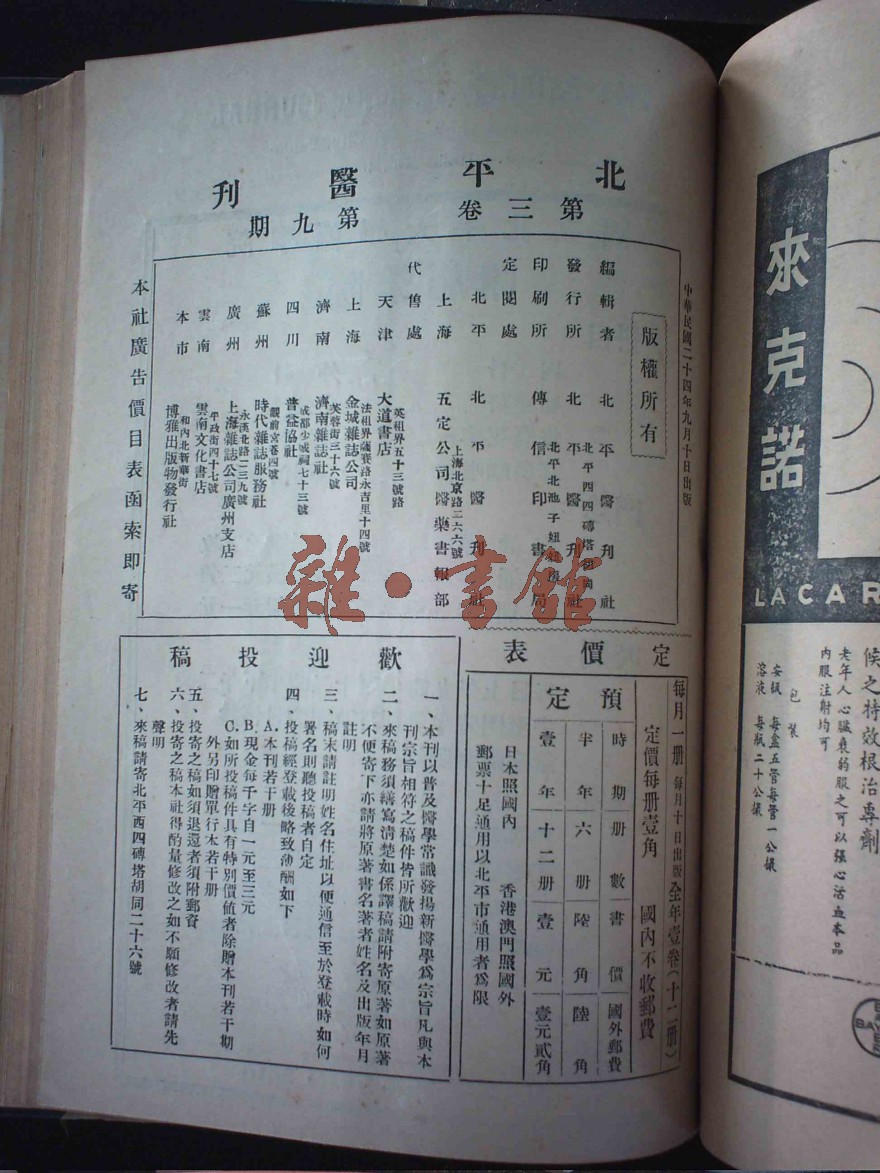 北平醫刊
第三卷 第九期
中華民國二十四年九月十日出版
版權所有
編輯者 北平醫刊社
北平西四磚塔胡同
發行所 北平醫刊社
北平北池子
印刷所 傳信印書局
定閱處
北平 北平醫刊社
上海北京路二六六號
上海 五定公司醫藥書報部
代售處
英租界五十三號路
天津 大道書店
法租界薩賽路永吉里十四號
上海 金城雜誌公司
芙蓉街三十六號
濟南 濟南雜誌社
成都少城祠七十三號
四川 普益協社
觀前宮巷四號
蘇州 時代雜誌服務社
永漢北路一三九號
廣州 上海雜誌公司廣州支店
平政街四十七號
雲南 雲南文化書店
和內北新華街
本市 博雅出版物發行社
本社廣告價目表函索即寄
雜·書館
定價表
每月一冊 每月十日出版 全年壹卷(十二冊)
定價每冊壹角 國內不收郵費
預定
時期 冊數 書價 國外郵費
半年 六冊 陸角 陸角
壹年 十二冊 壹元 壹元貳角
日本照國內 香港澳門照國外
郵票十足通用以北平市通用者爲限
歡迎投稿
一、本刊以普及醫學常識發揚新醫學爲宗旨凡與本
刊宗旨相符之稿件皆所歡迎
二、來稿務須繕寫清楚如係譯稿請附寄原著如原著
不便寄下亦請將原著書名著者姓名及出版年月
註明
三、稿末請註明姓名住址以便通信至於登載時如何
署名則聽投稿者自定
四、投稿經登載後略致薄酬如下
A.本刊若干冊
B.現金每千字自一元至三元
C.如所投稿件具有特別價值者除贈本刊若干期
外另印贈單行本若干冊
五、投寄之稿如須退還者須附郵資
六、投寄之稿本社得酌量修改之如不願修改者請先
聲明
七、來稿請寄北平西四磚塔胡同二十六號
來克諾
LACAR
候之特效根治專劑
老年人心臟衰弱服之可以强心活血本品
內服注射均可
包裝
安瓿 每盒五管每管一公撮
溶液 每瓶二十公撮